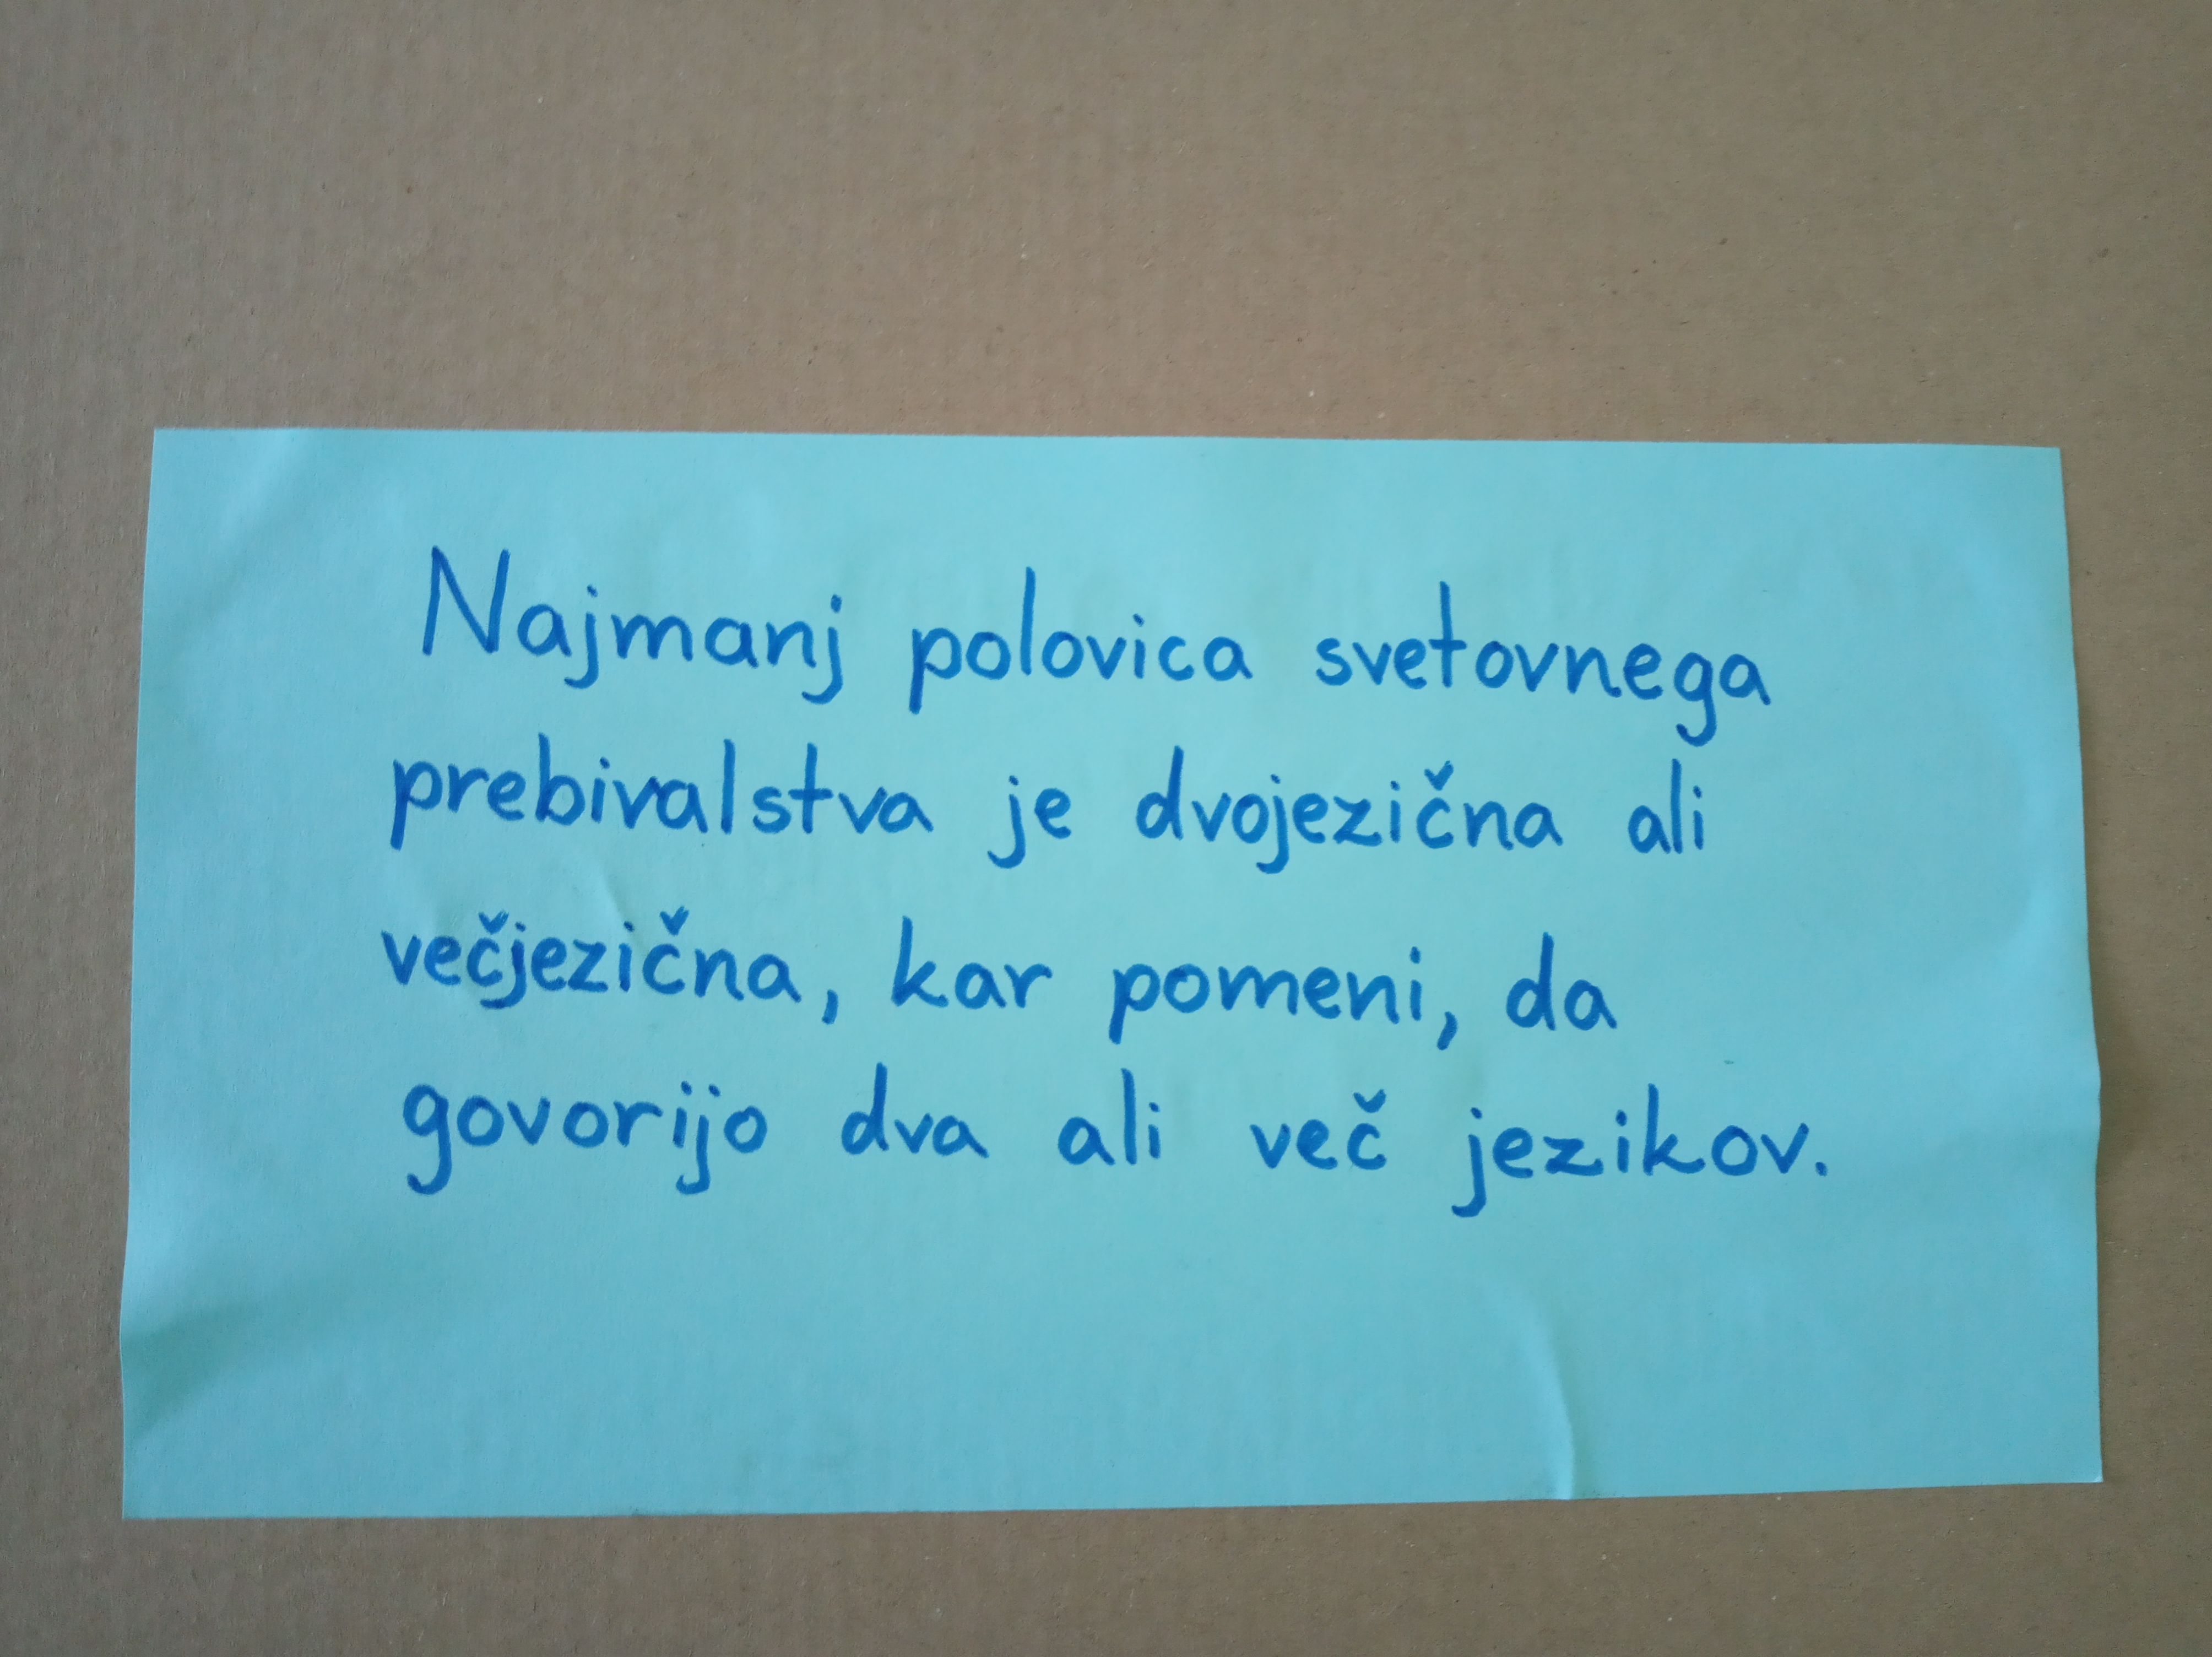 Najmanj polovica svetovnega
prebivalstva je dvojezična ali
večjezična, kar pomeni, da
govorijo dva ali več jezikov.